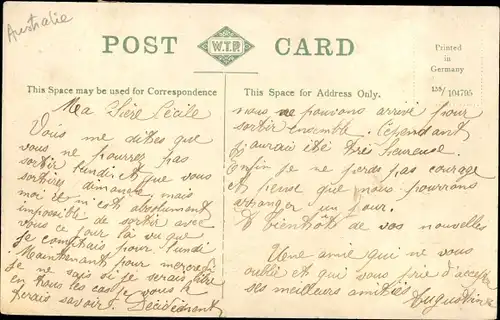 Australie
POST
W.T.P.
CARD
Printed
in
Germany
138/104795
This Space may be used for Correspondence
Ma Chère Cécile
Vous me dites que
vous ne pourrez pas
sortir lundi et que vous
sortirez dimanche, mais
moi il m'est absolument
impossible de sortir avec
vous ce jour là vu que
je comptais pour lundi
Maintenant pour mercredi
je ne sais si je serais libre
en tous les cas je vous le
ferais savoir. Décidément
This Space for Address Only.
nous ne pouvons arrivé pour
sortir ensemble. Cependant
j'aurais été très heureuse.
Enfin je ne perds pas courage
et pense que nous pourrons
arranger un jour.
A bientôt de vos nouvelles
Une amie qui ne vous
oublie et qui vous prie d'accepter
ses meilleurs amitiés
Augustine